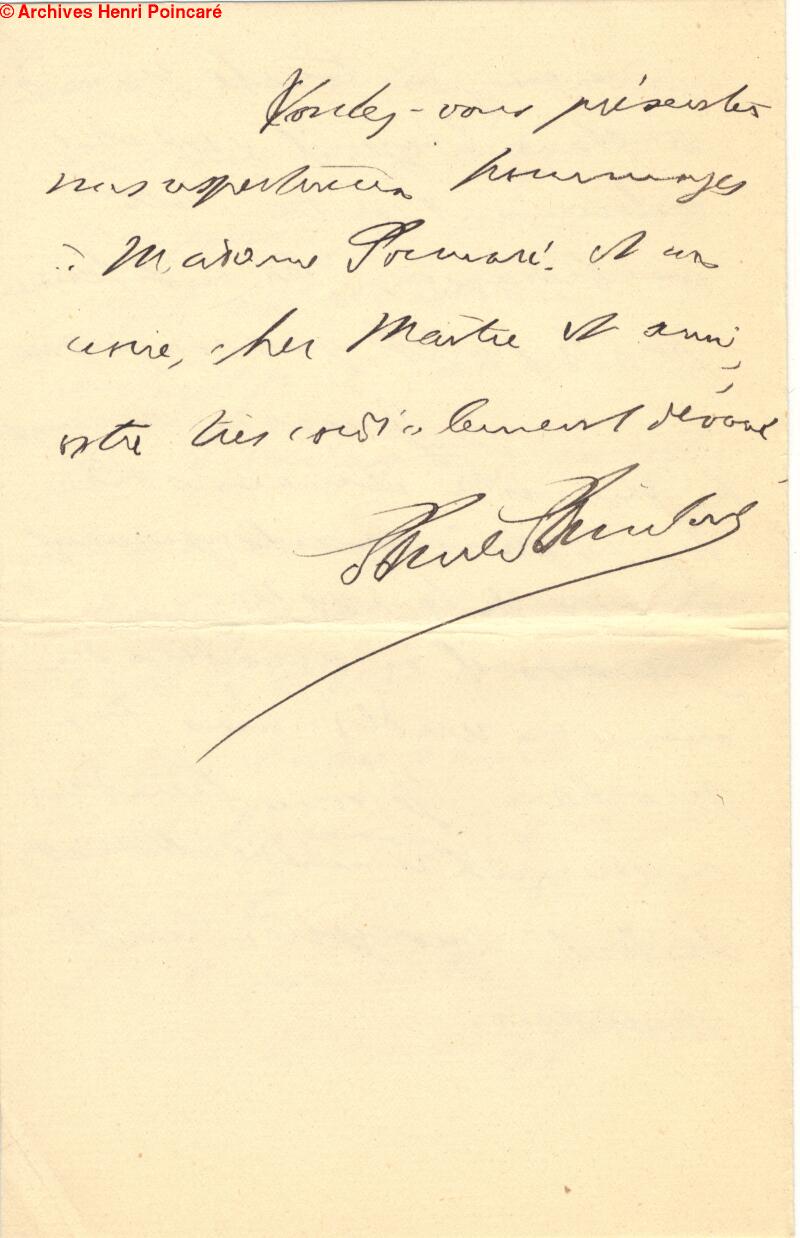 © Archives Henri Poincaré
Voulez-vous présenter
nos respectueux hommages
à Madame Poincaré et me
croire, cher Maître et ami,
votre très cordialement dévoué